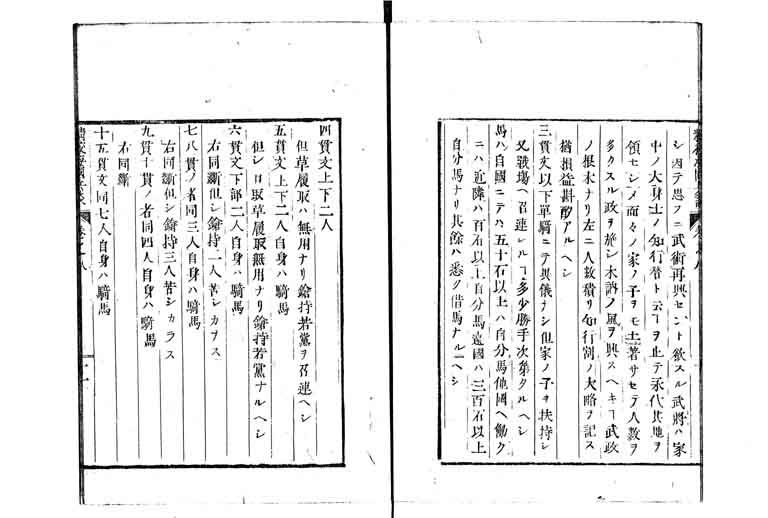 シ因テ思フニ武術再興セント欲スル武將ハ家
中ノ大身士ノ知行替ト云ヿヲ止テ永代其地ヲ
領セシメ而々ノ家ノ子ヲモ土著サセテ人数ヲ
多クスル政ヲ施シ木訥ノ風ヲ興スヘキヿ武政
ノ根本ナリ左ニ人数積リ知行割ノ大略ヲ記ス
猶損益斟酌アルヘシ
三貫文以下單騎ニテ異儀ナシ但家ノ子ヲ扶持シ
又戰場ヘ召連ルヿ多少勝手次第タルヘシ
馬ハ自國ニテハ五十石以上ハ自分馬他國ヘ働ク
ニハ近隣ハ百石以上自分馬遠國ハ三百石以上
自分馬ナリ其餘ハ悉ク借馬ナルヘシ
四貫文上下二人
但草履取ハ無用ナリ鎗持若黨ヲ召連ヘシ
五貫文上下二人自身ハ騎馬
但シ口取草履取無用ナリ鎗持若黨ナルヘシ
六貫文下部二人自身ハ騎馬
右同斷但シ鎗持二人苦シカラス
七八貫ノ者同三人自身ハ騎馬
右同斷但シ鎗持三人苦シカラス
九貫十貫ノ者同四人自身ハ騎馬
右同斷
十五貫文同七人自身ハ騎馬